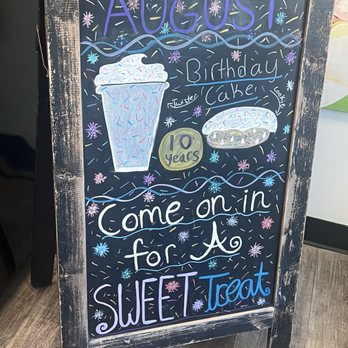 AUGUST
Birthday
Cake
Twister
Cookie
10
years
Come on in
for A
SWEET Treat